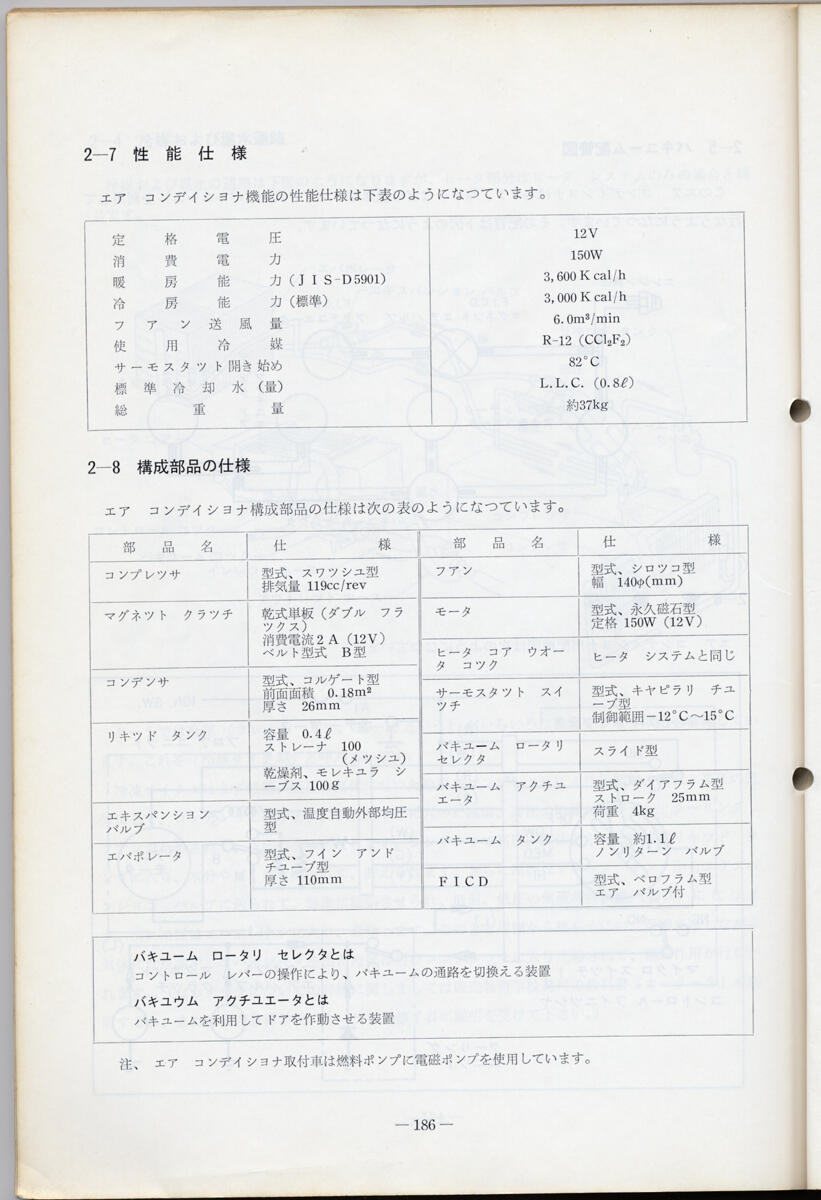 2—7 性能仕様
エア コンデイシヨナ機能の性能仕様は下表のようになつています。
定格電圧 12V
消費電力 150W
暖房能力(JIS-D5901) 3,600 K cal/h
冷房能力(標準) 3,000 K cal/h
フアン送風量 6.0m³/min
使用冷媒 R-12 (CCl₂F₂)
サーモスタツト開き始め 82°C
標準冷却水(量) L.L.C. (0.8ℓ)
総重量 約37kg
2—8 構成部品の仕様
エア コンデイシヨナ構成部品の仕様は次の表のようになつています。
部品名 仕様
コンプレツサ 型式、スワツシユ型
排気量 119cc/rev
マグネツト クラツチ 乾式単板(ダブル フラ
ツクス)
消費電流2A (12V)
ベルト型式 B型
コンデンサ 型式、コルゲート型
前面面積 0.18m²
厚さ 26mm
リキツド タンク 容量 0.4ℓ
ストレーナ 100
(メツシユ)
乾燥剤、モレキユラ シ
ーブス 100g
エキスパンション 型式、温度自動外部均圧
バルブ 型
エバポレータ 型式、フイン アンド
チユーブ型
厚さ 110mm
部品名 仕様
フアン 型式、シロツコ型
幅 140φ(mm)
モータ 型式、永久磁石型
定格 150W (12V)
ヒータ コア ウオー ヒータ システムと同じ
タ コツク
サーモスタツト スイ 型式、キヤピラリ チユ
ツチ ーブ型
制御範囲−12°C〜15°C
バキユーム ロータリ スライド型
セレクタ
バキユーム アクチユ 型式、ダイアフラム型
エータ ストローク 25mm
荷重 4kg
バキユーム タンク 容量 約1.1ℓ
ノンリターン バルブ
FICD 型式、ベロフラム型
エア バルブ付
バキユーム ロータリ セレクタとは
コントロール レバーの操作により、バキユームの通路を切換える装置
バキユウム アクチユエータとは
バキユームを利用してドアを作動させる装置
注、 エア コンデイシヨナ取付車は燃料ポンプに電磁ポンプを使用しています。
—186—